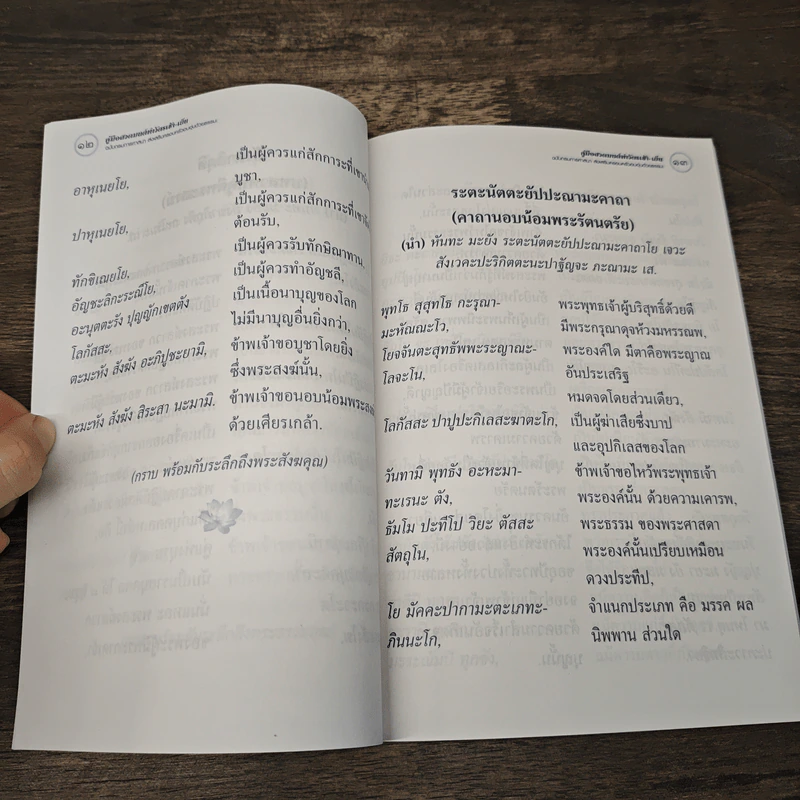 ๑๒
คู่มือสวดมนต์ทำวัตรเช้า-เย็น
เป็นผู้ควรแก่สักการะที่เขา
อาหุเนยโย,
บูชา,
เป็นผู้ควรแก่สักการะที่เขา
ปาหุเนยโย,
ต้อนรับ,
ทักขิเณยโย,
เป็นผู้ควรรับทักษิณาทาน,
อัญชะลิกะระณีโย,
เป็นผู้ควรทำอัญชลี,
อะนุตตะรัง ปุญญักเขตตัง
เป็นเนื้อนาบุญของโลก
โลกัสสะ,
ไม่มีนาบุญอื่นยิ่งกว่า,
ตะมะหัง สังฆัง อะภิปูชะยามิ,
ข้าพเจ้าขอบูชาโดยยิ่ง
ซึ่งพระสงฆ์นั้น,
ตะมะหัง สังฆัง สิระสา นะมามิ.
ข้าพเจ้าขอนอบน้อมพระสงฆ์
ด้วยเศียรเกล้า.
(กราบ พร้อมกับระลึกถึงพระสังฆคุณ)
คู่มือสวดมนต์ทำวัตรเช้า-เย็น
๑๓
ระตะนัตตะยัปปะณามะคาถา
(คาถานอบน้อมพระรัตนตรัย)
(นำ) หันทะ มะยัง ระตะนัตตะยัปปะณามะคาถาโย เจวะ
สังเวคะปะริกิตตะนะปาฐัญจะ ภะณามะ เส.
พุทโธ สุสุทโธ กะรุณา-
พระพุทธเจ้าผู้บริสุทธิ์ด้วยดี
มะหัณณะโว,
มีพระกรุณาดุจห้วงมหรรณพ,
โยจจันตะสุทธัพพะระญาณะ-
พระองค์ใด มีตาคือพระญาณ
โลจะโน,
อันประเสริฐ
หมดจดโดยส่วนเดียว,
โลกัสสะ ปาปูปะกิเลสะฆาตะโก,
เป็นผู้ฆ่าเสียซึ่งบาป
และอุปกิเลสของโลก
วันทามิ พุทธัง อะหะมา-
ข้าพเจ้าขอไหว้พระพุทธเจ้า
ทะเรนะ ตัง,
พระองค์นั้น ด้วยความเคารพ,
ธัมโม ปะทีโป วิยะ ตัสสะ
พระธรรม ของพระศาสดา
สัตถุโน,
พระองค์นั้นเปรียบเหมือน
ดวงประทีป,
โย มัคคะปากามะตะเภทะ-
จำแนกประเภท คือ มรรค ผล
ภินนะโก,
นิพพาน ส่วนใด